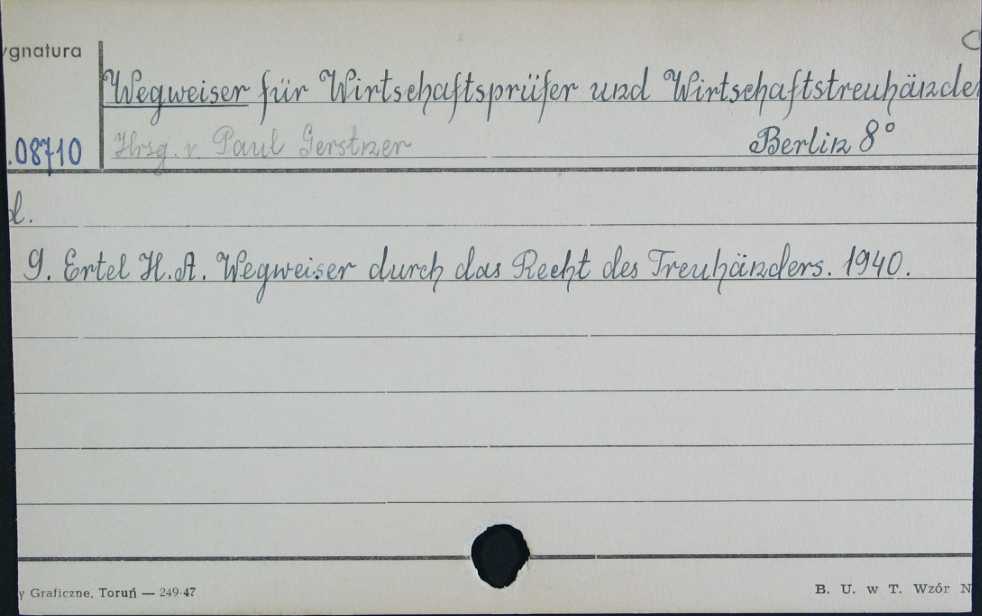 ygnatura
Wegweiser für Wirtschaftsprüfer und Wirtschaftstreuhänder
.08710 Hrsg. v. Paul Gerstner Berlin 8°
d.
9. Ertel H.A. Wegweiser durch das Recht des Treuhänders. 1940.
y Graficzne, Toruń — 249-47 B. U. w T. Wzór N